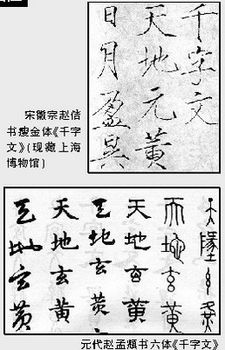 千字文
天地元黃
日月盈昃
宋徽宗赵佶
书瘦金体《千字
文》(现藏上海
博物馆)
天地玄黃
天地玄黃
天地玄黃
天地玄黃
天地玄黃
天地玄黃
元代赵孟頫书六体《千字文》